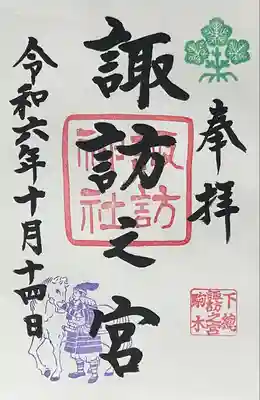 奉拝
諏訪之宮
諏訪神社
下總
諏訪之宮
駒木
令和六年十月十四日